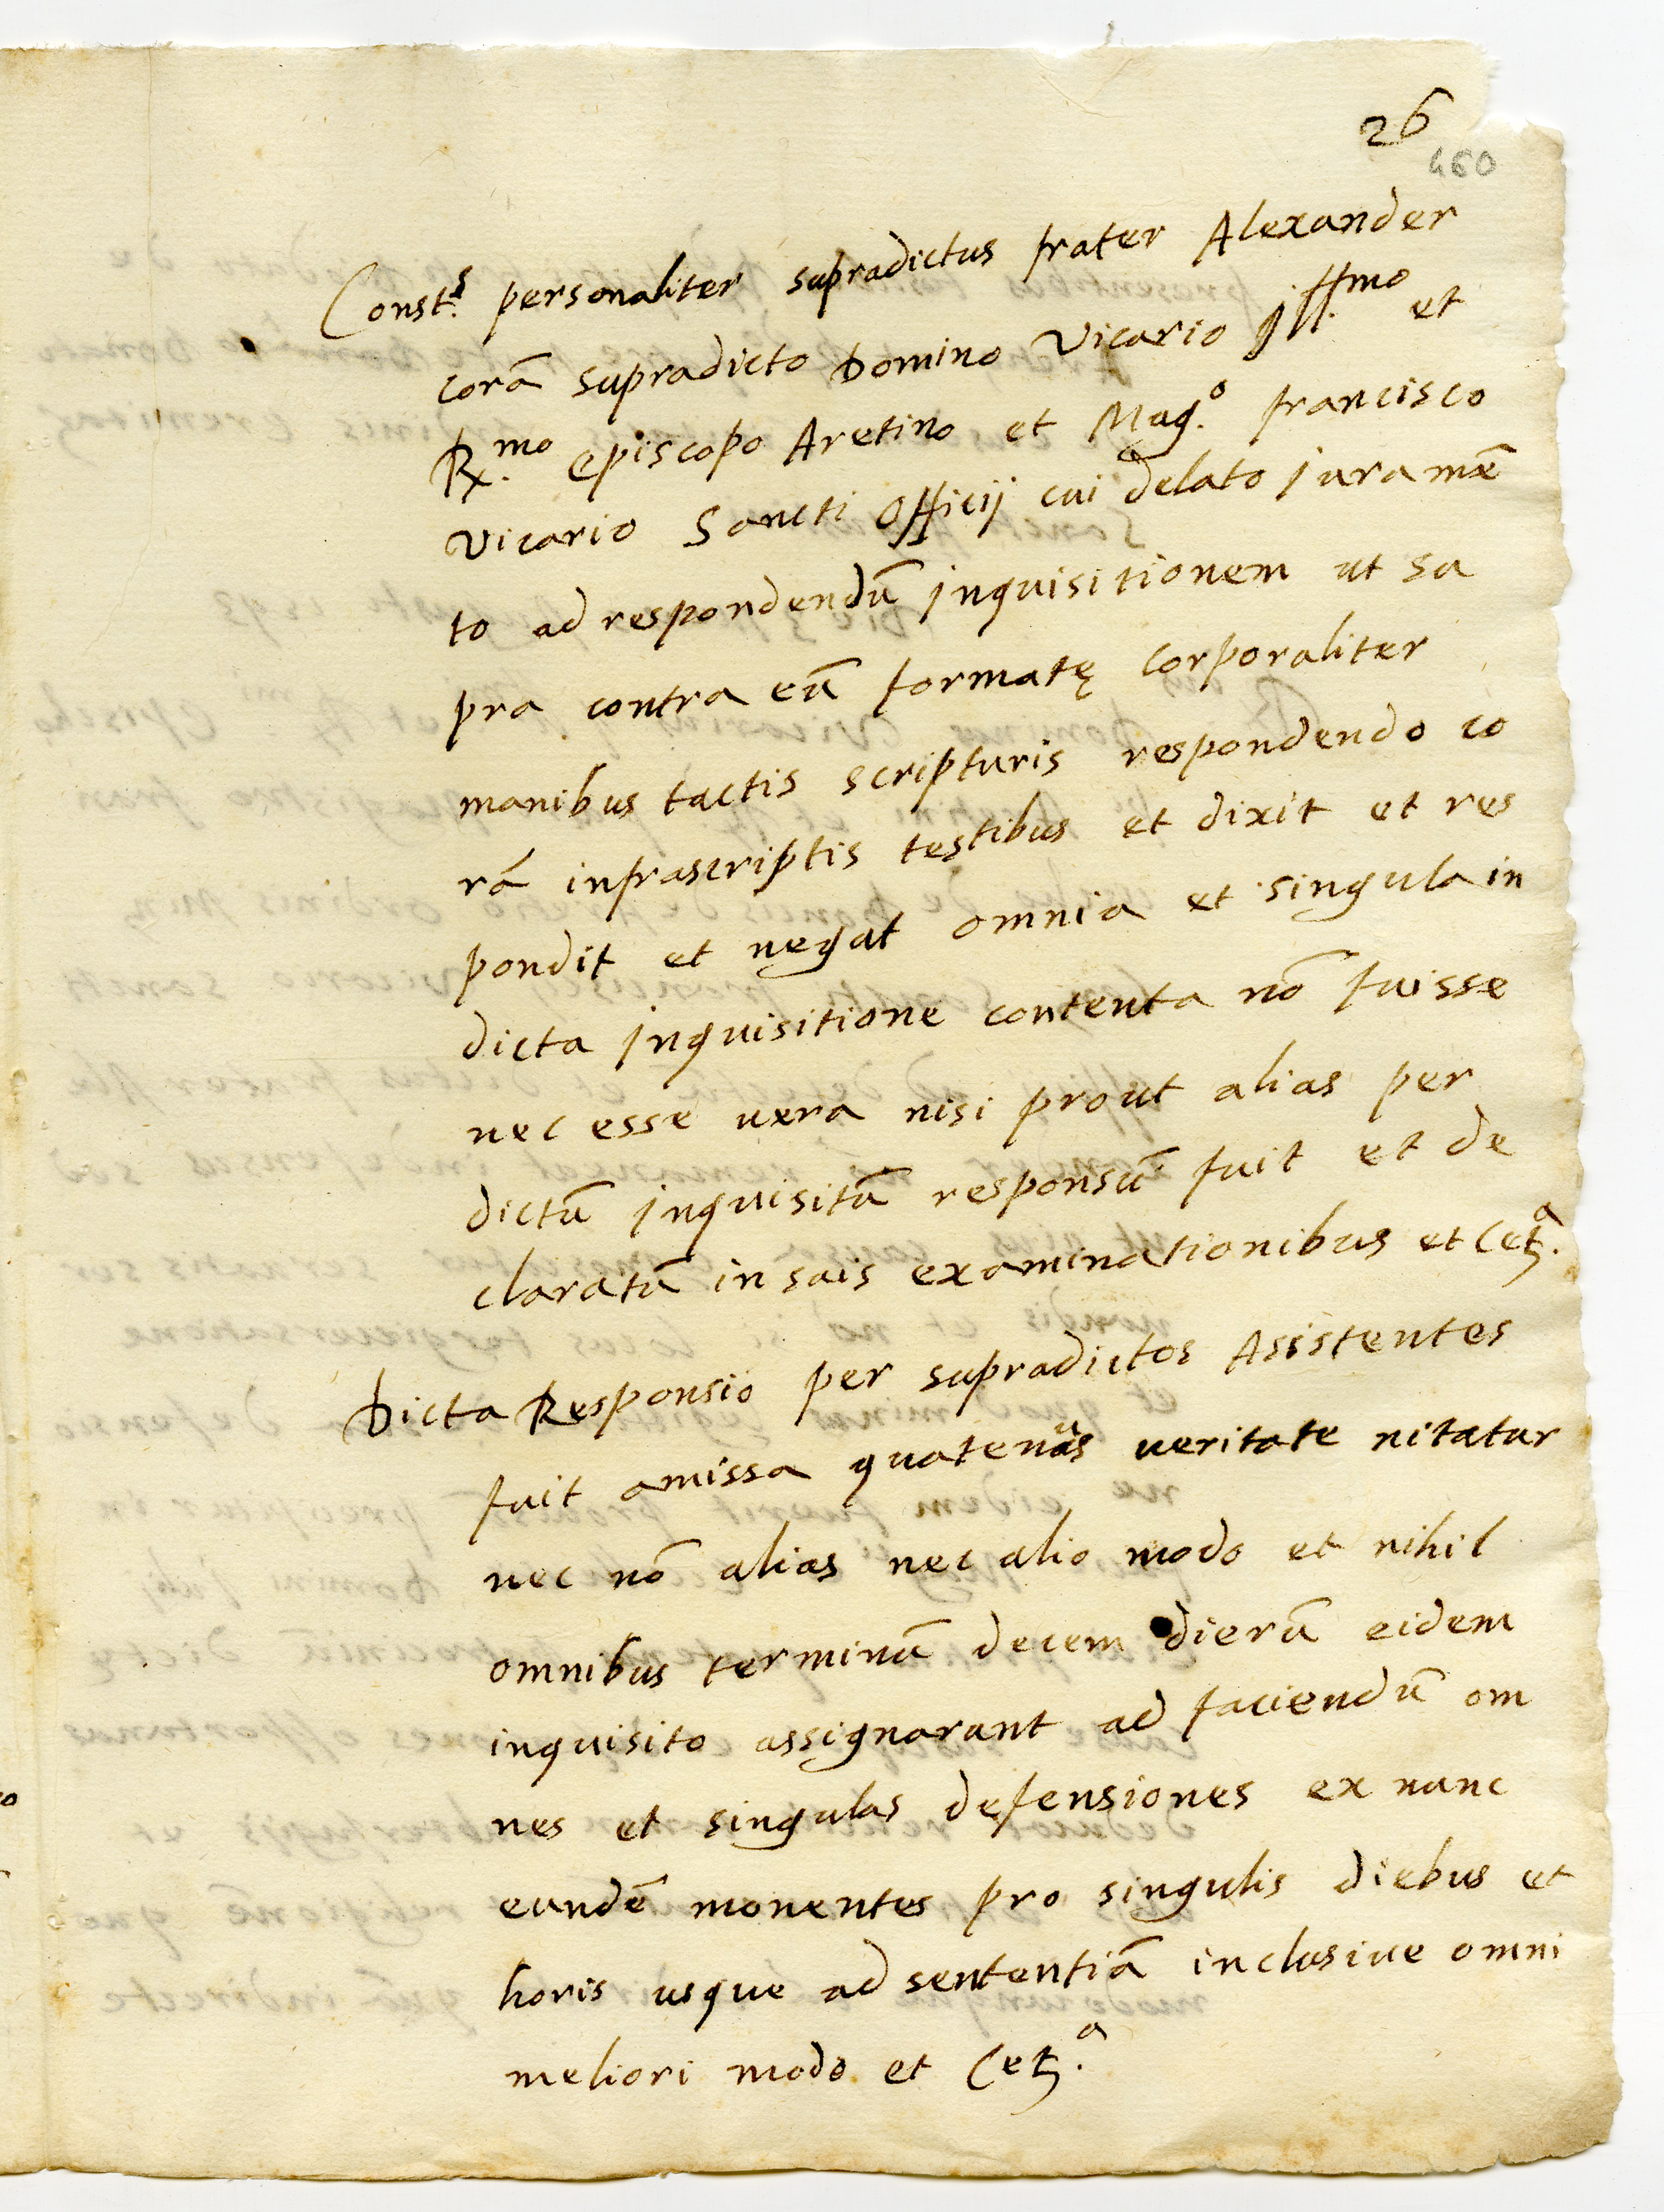 26
460
Const.s personaliter supradictus frater Alexander
corā supradicto Domino Vicario Ill.mo et
R.mo Episcopo Aretino et Mag.o francisco
Vicario Sancti Officij cui delato juramē
to ad respondendū jnquisitionem ut su
pra contra eū formatę corporaliter
manibus tactis scripturis respondendo co
rā infrascriptis testibus et dixit et res
pondit et negat omnia et singula in
dicta jnquisitione contenta nō fuisse
nec esse uera nisi prout alias per
dictū jnquisitū responsū fuit et de
claratū in suis examinationibus et Cet.a
Dicta Responsio per supradictos Assistentes
fuit amissa quatenus ueritate nitatur
nec nō alias nec alio modo et nihil
omnibus terminū decem dierū eidem
inquisito assignarunt ad faciendū om
nes et singulas defensiones ex nunc
eundē monentes pro singulis diebus et
horis usque ad sententiā inclusiue omni
meliori modo et Cet.a